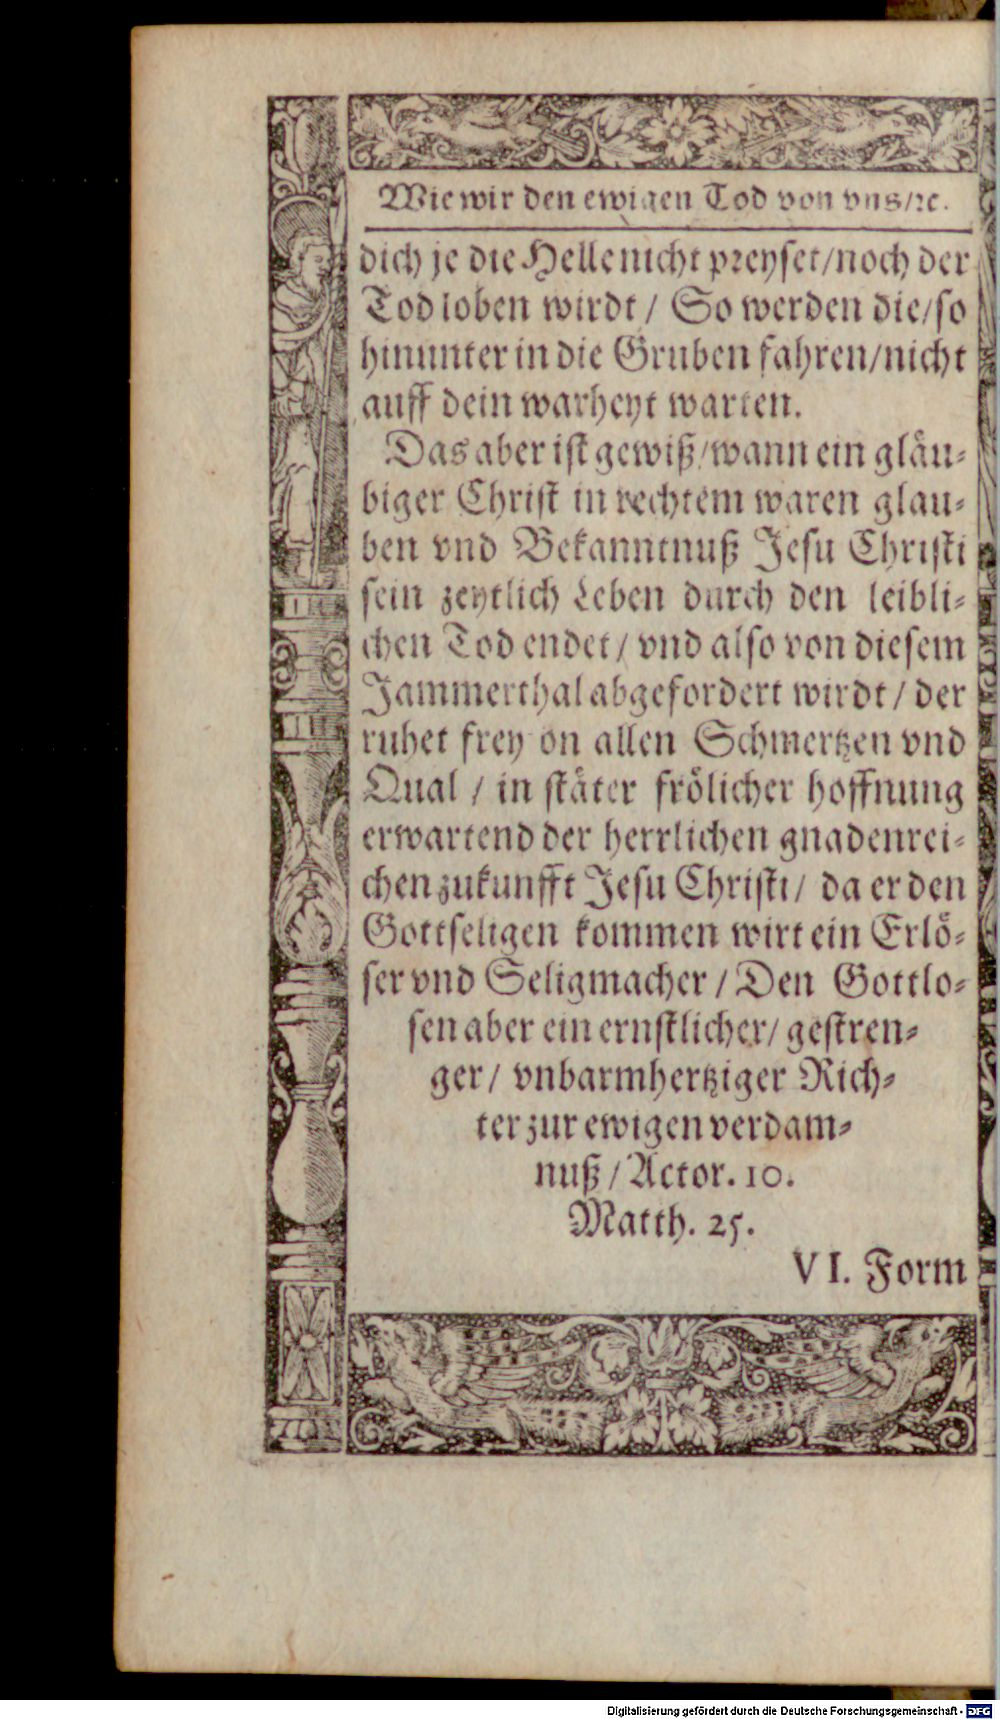 Wie wir den ewigen Tod von vns/ꝛc.
dich je die Helle nicht preyset/noch der
Tod loben wirdt / So werden die/so
hinunter in die Gruben fahren/nicht
auff dein warheyt warten.
Das aber ist gewiß/wann ein gläu-
biger Christ in rechtem waren glau-
ben vnd Bekanntnuß Jesu Christi
sein zeytlich Leben durch den leibli-
chen Tod endet/ vnd also von diesem
Jammerthal abgefordert wirdt / der
ruhet frey on allen Schmertzen vnd
Qual / in stäter frölicher hoffnung
erwartend der herrlichen gnadenrei-
chen zukunfft Jesu Christi/ da er den
Gottseligen kommen wirt ein Erlö-
ser vnd Seligmacher / Den Gottlo-
sen aber ein ernstlicher/ gestren-
ger/ vnbarmhertziger Rich-
ter zur ewigen verdam-
nuß / Actor. 10.
Matth. 25.
VI. Form
Digitalisierung gefördert durch die Deutsche Forschungsgemeinschaft - DFG